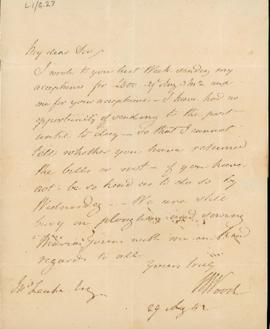 L1/2.27
My dear Sir,
I wrote to you last Week sending my
acceptance for 200 29 Aug 3 m/d and
me for your acceptance - I have had no
opportunity of sending to the post
until to day - So that I cannot
tell whether you have returned
the bills or not - if you have
not - be so kind as to do so by
Wednesday - We are still
busy in ploughing and sowing
joins with me in kind
regards to all
Yours truly
Wood
29 Aug 42
Esq